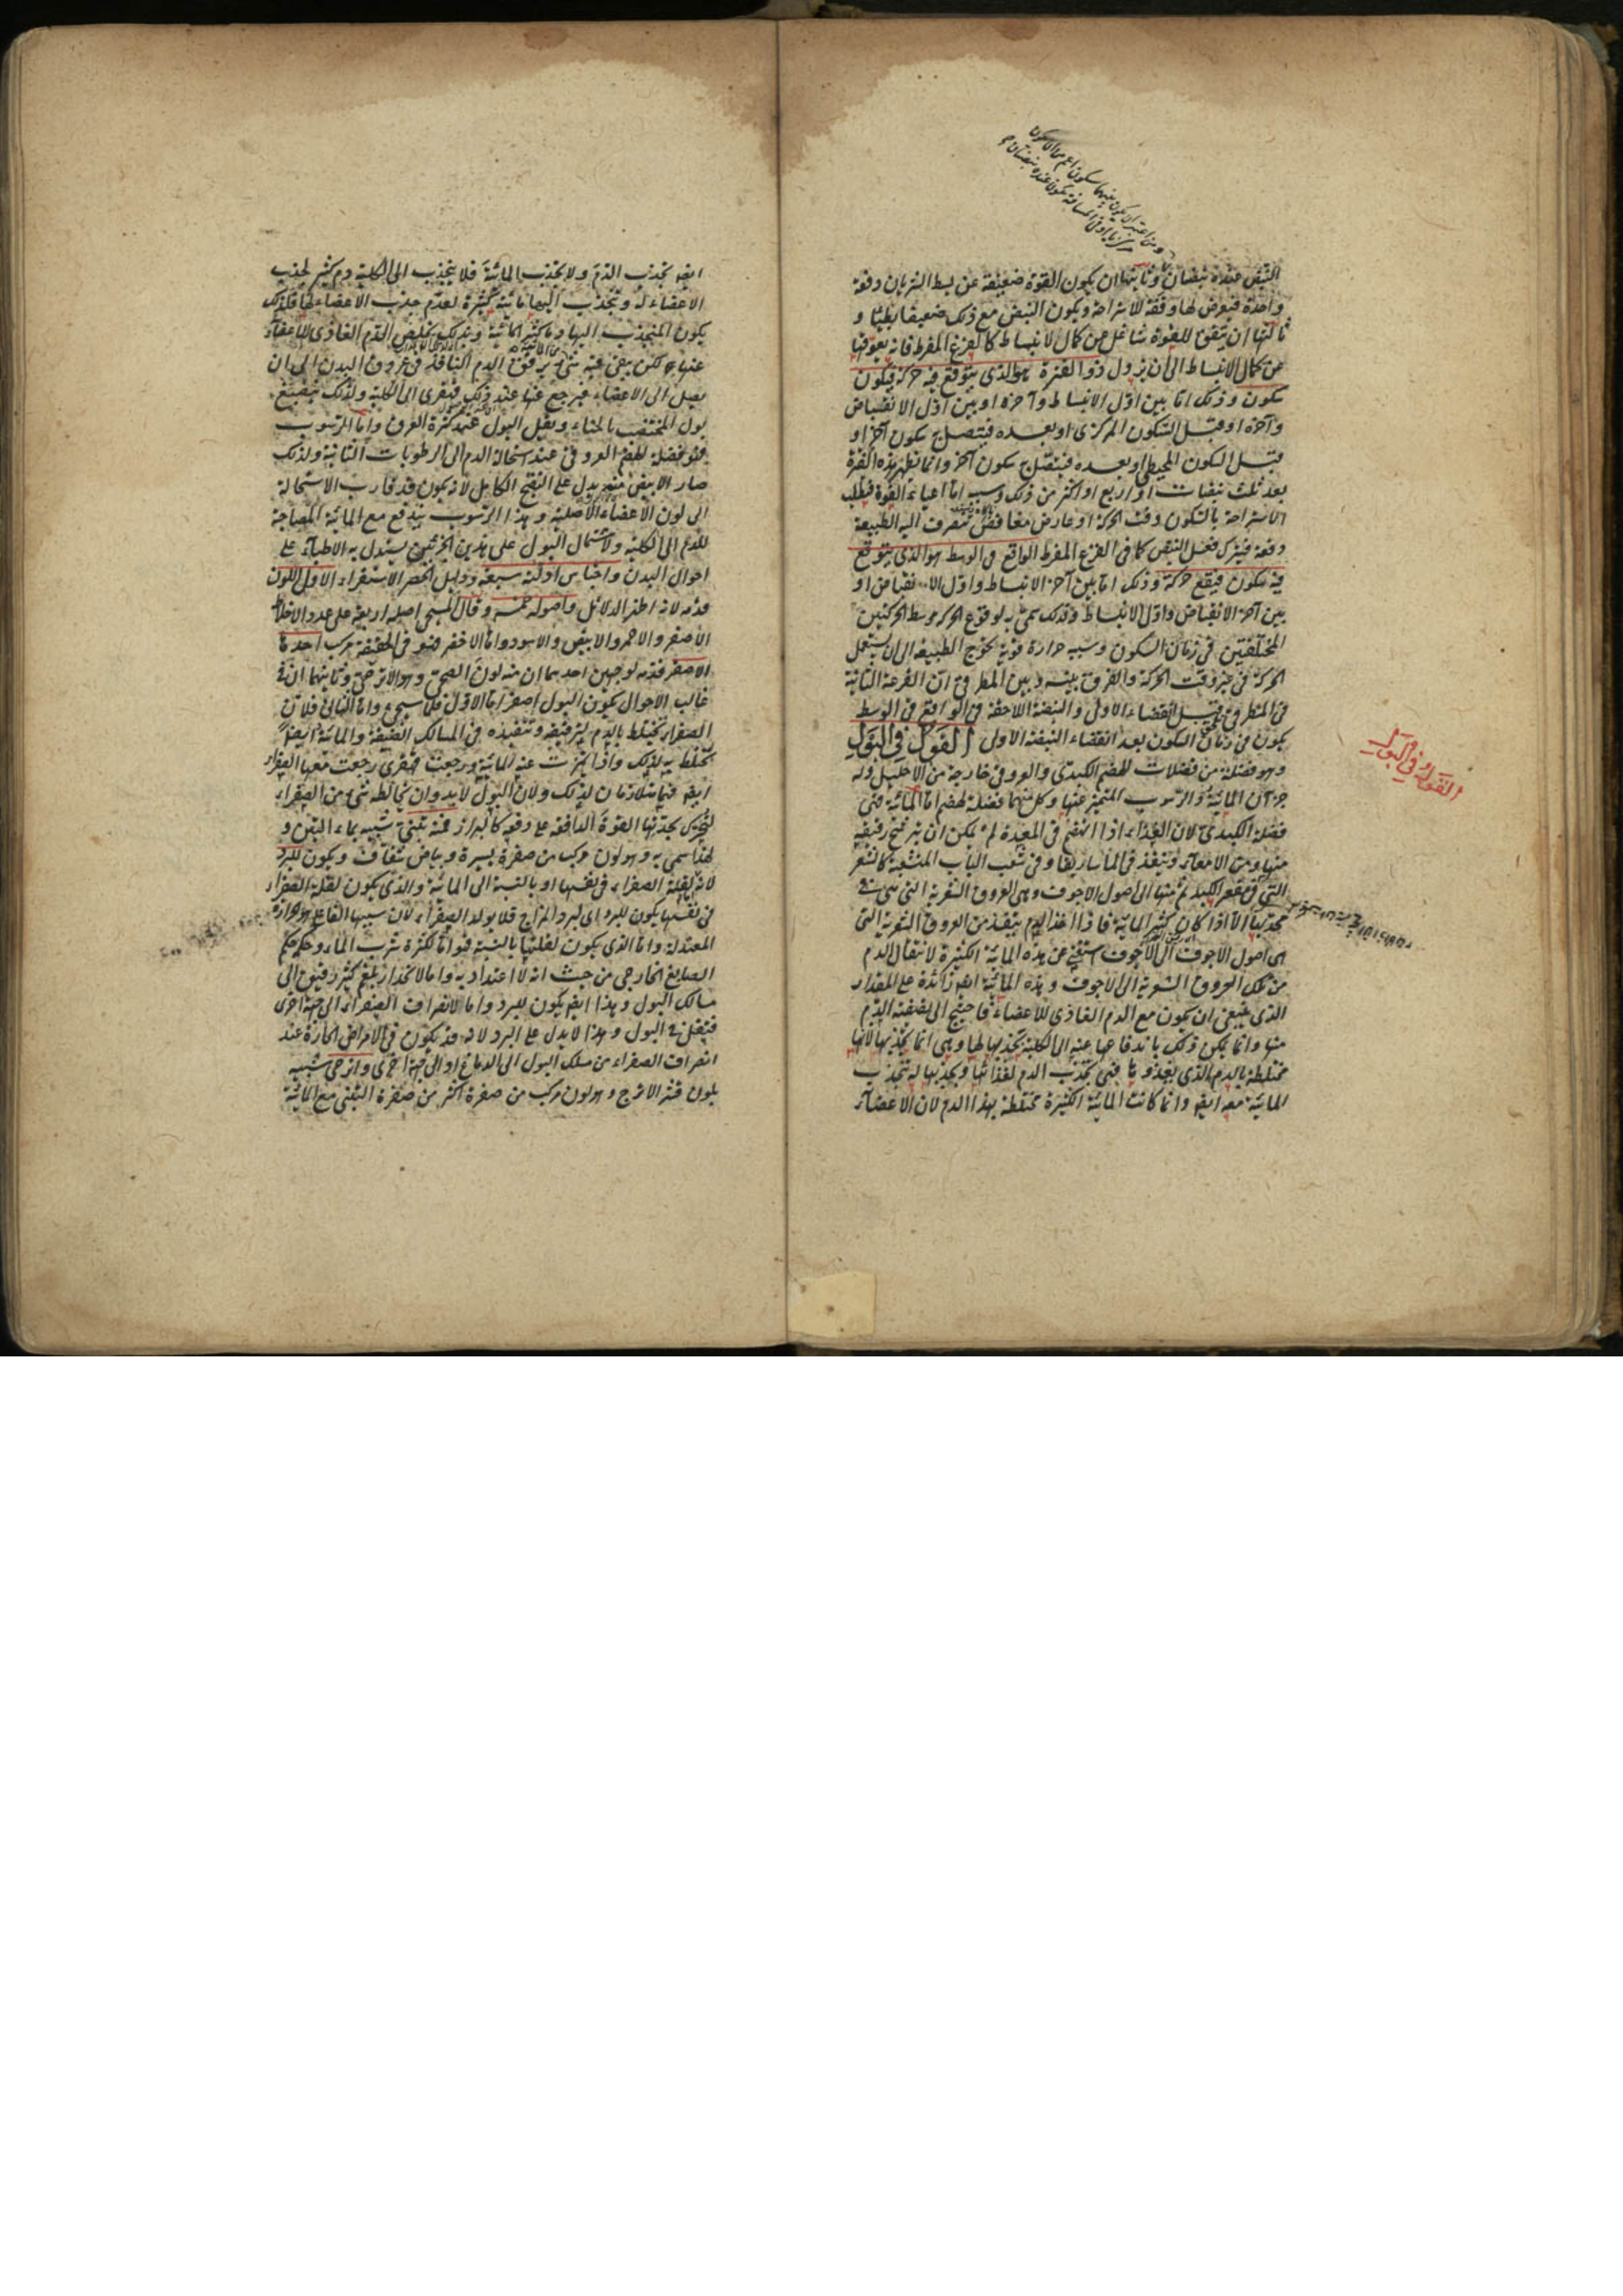 النبض عنده نبضان وثانيها ان يكون القوة ضعيفة عن بسط الشريان دفعة
واحدة فيعرض لها وقفة للاستراحة ويكون النبض مع ذلك ضعيفا بطيئا و
ثالثها ان يتفق للقوة شاغل عن كمال الانبساط كالفزع المفرط فانه يعوقها
عن كمال الانبساط الى ان يزول ذو الفترة هو الذى يتوقع فيه حركة فيكون
سكون وذلك اما بين اول الانبساط وآخره او بين اول الانقباض
وآخره او قبل السكون المركزى او بعده فيتصل سكون آخر او
قبل السكون المحيطى او بعده فيتصل سكون آخر وانما تظهر هذه الفترة
بعد ثلث نبضات او اربع او اكثر من ذلك وسببه اما اعياء القوة فيطلب
الاستراحة بالسكون وقت الحركة او عارض مغافص تنصرف اليه الطبيعة
دفعة فيترك فعل النبض كما فى الفزع المفرط الواقع فى الوسط هو الذى يتوقع
فيه سكون فيقع حركة وذلك اما بين آخر الانبساط واول الانقباض او
بين آخر الانقباض واول الانبساط ولذلك سمى به لوقوع الحركة وسط الحركتين
المختلفتين فى زمان السكون وسببه حرارة قوية تحوج الطبيعة الى ان يستعمل
الحركة فى غير وقت الحركة والفرق بينه وبين المطرقى ان القرعة الثانية
فى المطرقى قبل انقضاء الاولى والنبضة اللاحقة فى الواقع فى الوسط
يكون فى زمان السكون بعد انقضاء النبضة الاولى القول فى البول
وهو فضلة من فضلات الهضم الكبدى والعروقى خارجة من الاحليل وله
جزآن المائية والرسوب المتميز عنها وكل منهما فضلة لهضم اما المائية فهى
فضلة الكبدى لان الغذاء اذا انهضم فى المعدة لم يمكن ان يترشح رقيقه
منها ومن الامعاء وينفذ فى الماساريقا وفى شعب الباب المنشعبة كالشعر
التى فى مقعر الكبد ثم منها الى اصول الاجوف وهى العروق الشعرية التى هى فى
محدبها الا اذا كان كثير المائية فاذا اخذ الدم ينفذ من العروق الشعرية التى
هى اصول الاجوف الى الاجوف استغنى عن هذه المائية الكثيرة لانتقال الدم
من تلك العروق الشعرية الى الاجوف وهذه المائية ايضا زائدة على المقدار
الذى ينبغى ان يكون مع الدم الغاذى للاعضاء فاحتيج الى تصفية الدم
منها وانما يكون ذلك باندفاعها عنه الى الكلية بجذبها لها وهى انما تجذبها لانها
مختلطة بالدم الذى يغذوها فهى تجذب الدم لغذائها وبجذبها له تنجذب
المائية معه ايضا وانما كانت المائية الكثيرة مختلطة بهذا الدم لان الاعضاء
القول فى البول
ايضا تجذب الدم ولا تجذب المائية فلا ينجذب الى الكلية دم كثير لجذب
الاعضاء له وتنجذب اليها مائية كثيرة لعدم جذب الاعضاء لها فلذلك
يكون المنجذب اليها دما كثير المائية وبذلك يخلص الدم الغاذى للاعضاء
عنها لكن يبقى فيه شىء يرقق الدم النافذ فى عروق البدن الى ان
يصل الى الاعضاء فيرجع عنها عند ذلك قهقرى الى الكلية ولذلك ينصبغ
بول المختضب بالحناء ويقل البول عند كثرة العرق واما الرسوب
فهو فضلة الهضم العروقى عند استحالة الدم الى الرطوبات الثانية ولذلك
صار الابيض منه يدل على النضج الكامل لانه يكون قد قارب الاستحالة
الى لون الاعضاء الاصلية وهذا الرسوب يندفع مع المائية المصاحبة
للدم الى الكلية ولاشتمال البول على هذين الجزئين يستدل به الاطباء على
احوال البدن واجناس ادلته سبعة ودليل الحصر الاستقراء الاول اللون
قدمه لانه اظهر الدلائل واصوله خمسة وقال المسيحى اصله اربعة على عدد الاخلاط
الاصفر والاحمر والابيض والاسود واما الاخضر فهو فى الحقيقة مركب احدها
الاصفر قدمه لوجهين احدهما ان منه لون الصحى وهو الاترجى وثانيهما ان فى
غالب الاحوال يكون البول اصفر اما الاول فلما سيجىء واما الثانى فلان
الصفراء تختلط بالدم لترقيقه وتنفيذه فى المسالك الضيقة والمائية ايضا
تختلط به لذلك واذا تميزت عنه المائية ورجعت قهقرى رجعت معها الصفراء
ايضا فهما متلازمان لذلك ولان البول لابد وان يخالطه شىء من الصفراء
لتحرك بحدتها القوة الدافعة على دفعه كالبراز فمنه تبنى شبيه بماء التبن و
لهذا سمى به وهو لون مركب من صفرة يسيرة وبياض شفاف ويكون للبرد
لانه لقلة الصفراء فى نفسها او بالنسبة الى المائية والذى يكون لقلة الصفراء
فى نفسها يكون للبرد اى لبرد المزاج فلا يولد الصفراء لان سببها الفاعل هو الحرارة
المعتدلة واما الذى يكون لقلتها بالنسبة فهو اما لكثرة شرب الماء وحكمه حكم
الصابغ الخارجى من حيث انه لا اعتداد به واما لانحدار بلغم كثير دفع الى
مسالك البول وهذا ايضا يكون للبرد واما لانصراف الصفراء الى جهة اخرى
فيقل فى البول وهذا لا يدل على البرد لانه قد يكون فى الامراض الحارة عند
انصراف الصفراء من مسلك البول الى الدماغ او الى جهة اخرى واترجى شبيه
بلون قشر الاترج وهو لون مركب من صفرة اكثر من صفرة التبنى مع المائية